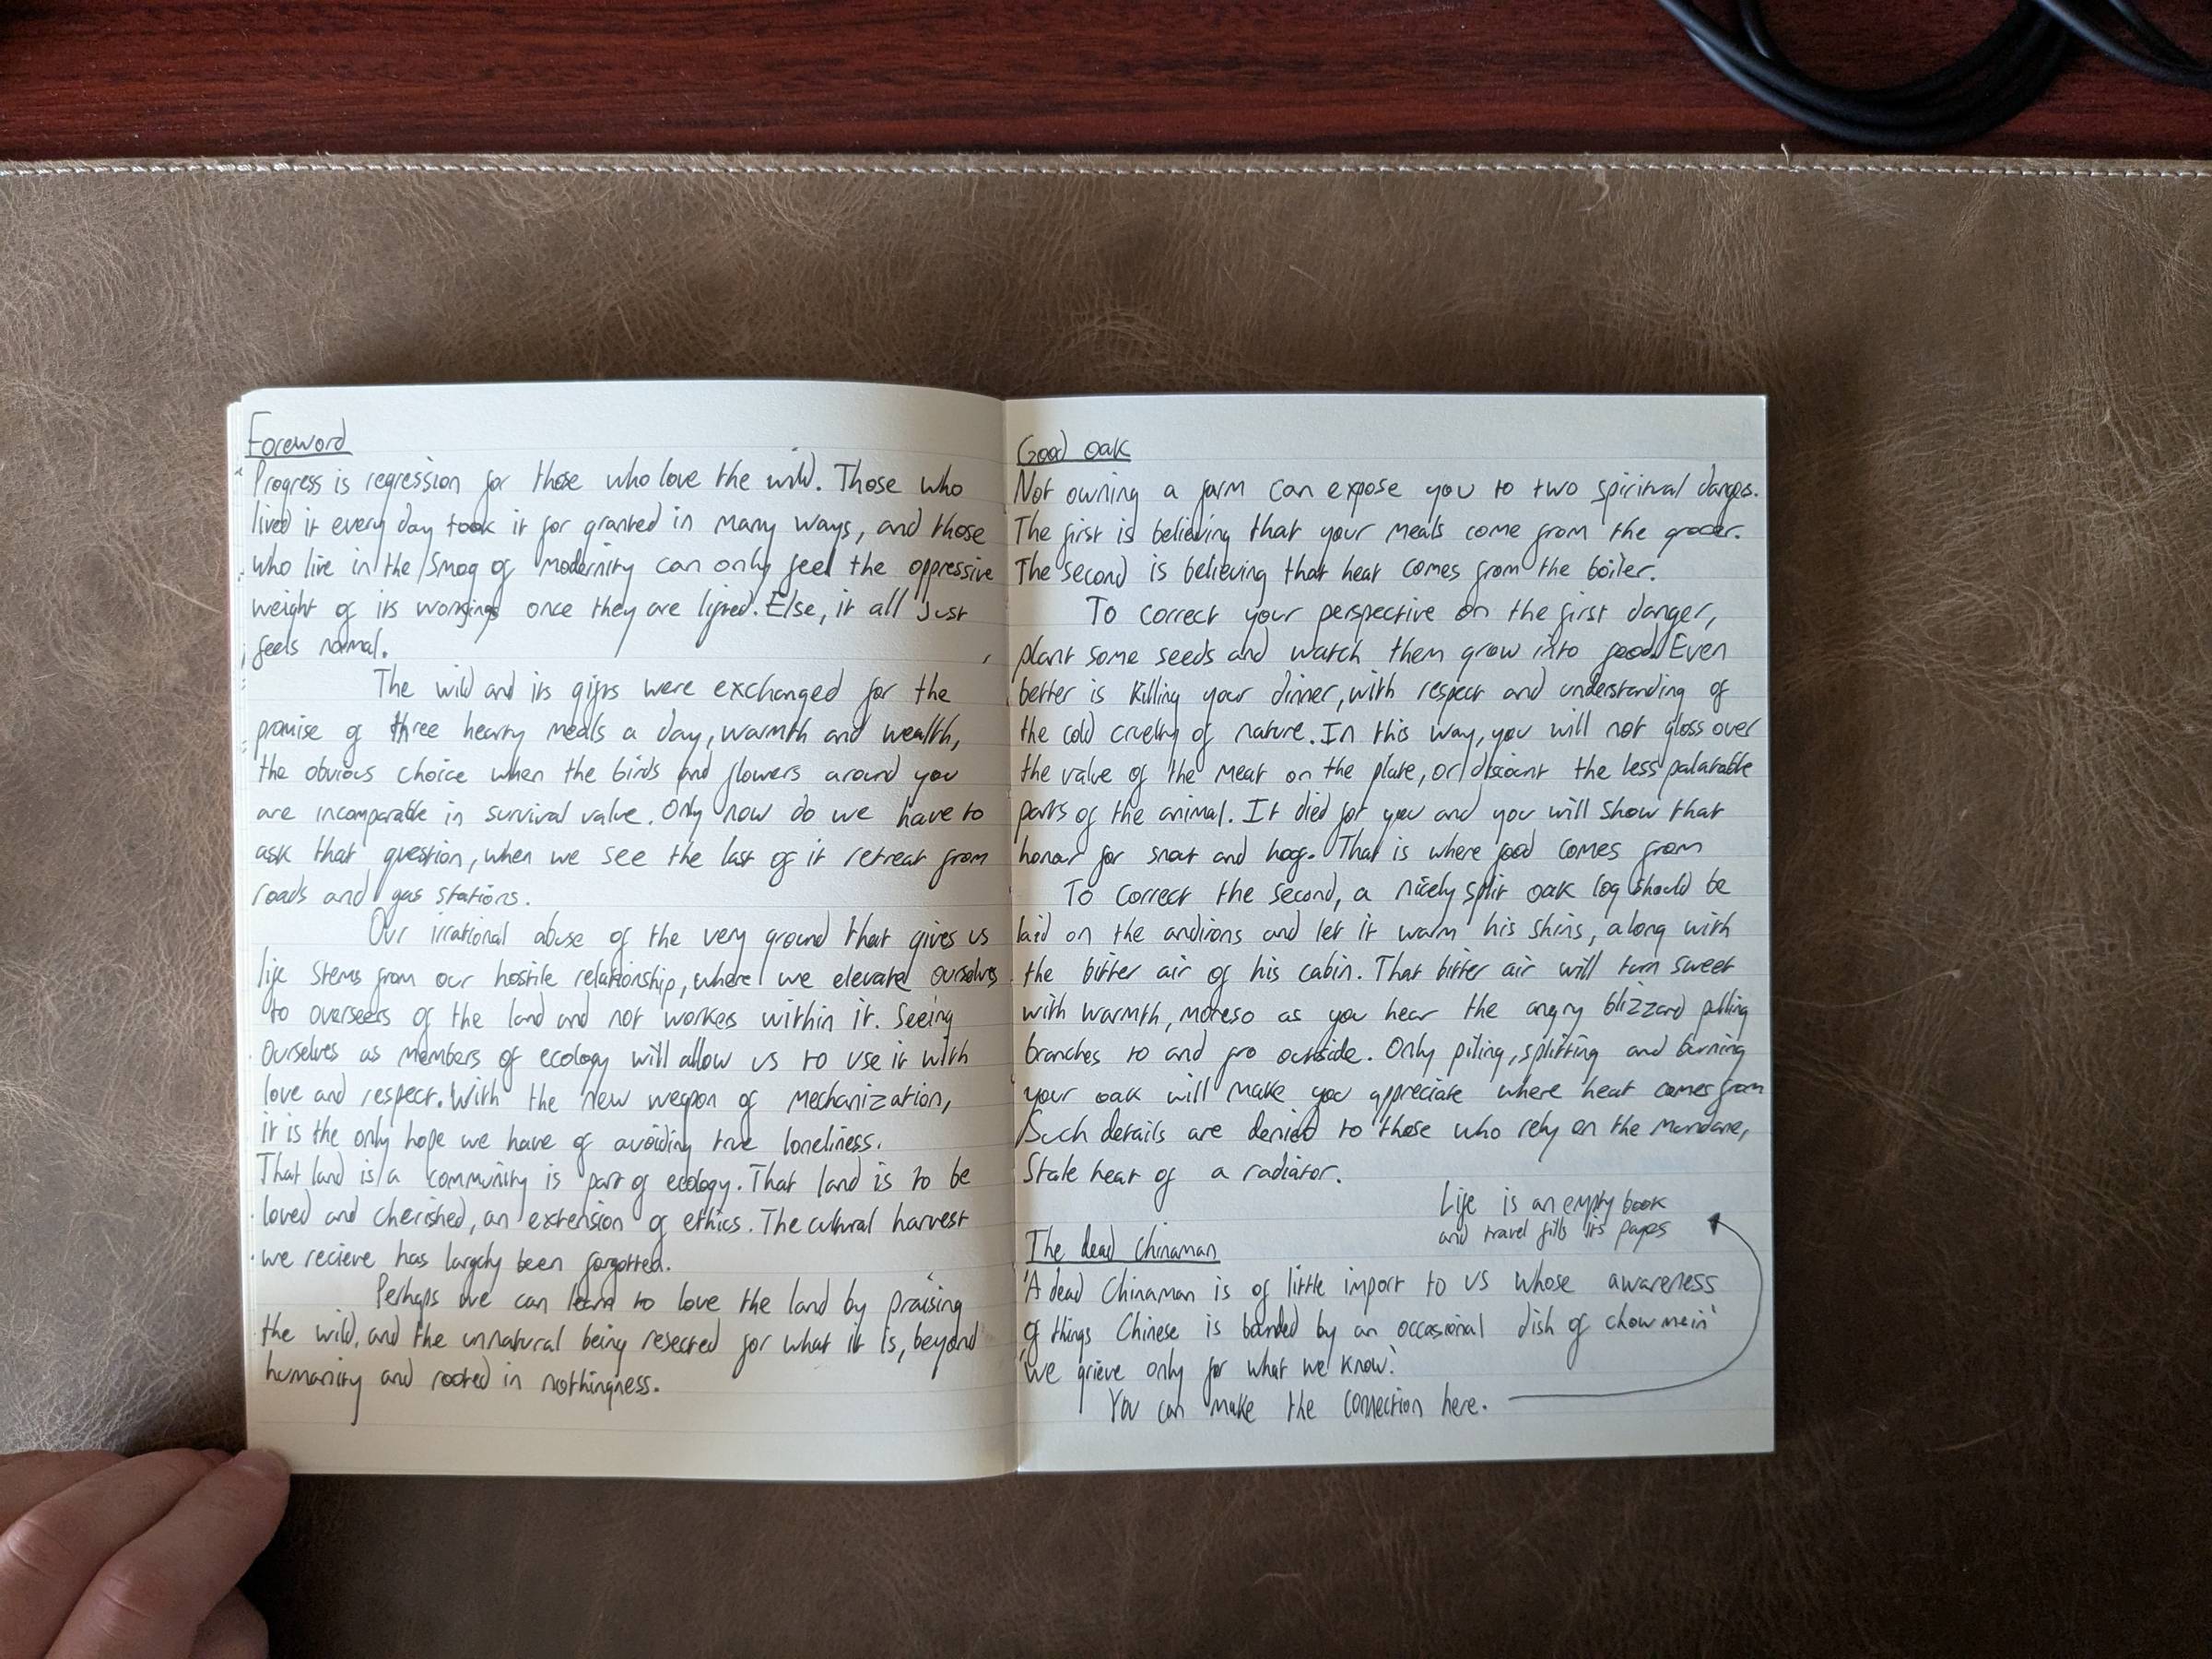 Foreword
Progress is regression for those who love the wild. Those who
lived it every day took it for granted in many ways, and those
who live in the smog of modernity can only feel the oppressive
weight of its workings once they are lifted. Else, it all just
feels normal.
The wild and its gifts were exchanged for the
promise of three hearty meals a day, warmth and wealth,
the obvious choice when the birds and flowers around you
are incomparable in survival value. Only now do we have to
ask that question, when we see the last of it retreat from
roads and gas stations.
Our irrational abuse of the very ground that gives us
life stems from our hostile relationship, where we elevate ourselves
to overseers of the land and not workers within it. Seeing
ourselves as members of ecology will allow us to use it with
love and respect. With the new weapon of mechanization,
it is the only hope we have of avoiding true loneliness.
That land is a community is part of ecology. That land is to be
loved and cherished, an extension of ethics. The cultural harvest
we recieve has largely been forgotten.
Perhaps we can learn to love the land by praising
the wild, and the unnatural being resected for what it is, beyond
humanity and rooted in nothingness.
Good oak
Not owning a farm can expose you to two spiritual dangers.
The first is believing that your meals come from the grocer.
The second is believing that heat comes from the boiler.
To correct your perspective on the first danger,
plant some seeds and watch them grow into food. Even
better is killing your dinner, with respect and understanding of
the cold cruelty of nature. In this way, you will not gloss over
the value of the meat on the plate, or discount the less palatable
parts of the animal. It died for you and you will show that
honour for snout and hog. That is where food comes from
To correct the second, a nicely split oak log should be
laid on the andirons and let it warm his shins, along with
the bitter air of his cabin. That bitter air will turn sweet
with warmth, moreso as you hear the angry blizzard pulling
branches to and fro outside. Only piling, splitting and burning
your oak will make you appreciate where heat comes from
Such details are denied to those who rely on the mundane,
stale heat of a radiator.
Life is an empty book
and travel fills its pages
The dead Chinaman
'A dead Chinaman is of little import to us whose awareness
of things Chinese is bounded by an occasional dish of chow mein'
'we grieve only for what we know.'
You can make the connection here.